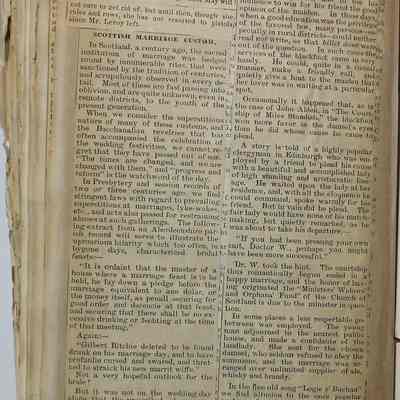 not care to get rid of, but until then, though she
rules and rows, she has not resorted to pistols
since Mr. Leroy left.
SCOTTISH MARRIAGE CUSTOM.
In Scotland, a century ago, the social
institution of marriage was hedged
round by innumerable rites, that were
sanctioned by the tradition of centuries,
and scrupulously observed in every de-
tail. Most of these are fast passing into
oblivion, and are quite unknown, even in
remote districts, to the youth of the
present generation.
When we consider the superstitious
nature of many of these customs, and
the Bacchanalian revelries that too
often accompanied the celebration of
the wedding festivities, we cannot re-
gret that they have passed out of use.
"The times are changed, and we are
changed with them," and "progress and
reform" is the watchword of the day.
In Presbytery and session records of
two or three centuries ago, we find
stringent laws with regard to prevailing
superstitions at marriages, lyke-wakes,
etc., and acts also passed for restraining
abuses at such gatherings. The follow-
ing extract from an Aberdeenshire par-
ish record will serve to illustrate the
uproarious hilarity which too often, in
bygone days, characterized bridal
feasts:—
"It is ordaint that the maister of the
house where a marriage feast is to be
held, he lay down a pledge before the
marriage, equivalent to ane dolar, or
the money itself, as penall, securing for
good order and decorme at that feast,
and securing that there shall be no ex-
cessive drinking or
of that meeting."
Again:—
"Gilbert Ritchie deleted to be found
drunk on his marriage day, and to have
profanlie cursed and swared, and threat-
ned to straick his new marrit wiffe."
Not a very hopeful outlook for the
bride!
But it was not on the wedding-day
nuance to win for his friend the good
opinion of the maiden. In those days,
when a good education was the privilege
of the favored few, many persons—es-
pecially in rural districts—could neither
read nor write, so that billet doux were
out of the question. In such cases the
services of the blackfoot came in very
handy. He could, quite in a casual
manner, make a friendly call, and
quietly give a hint to the maiden that
her lover was in waiting at a particular
spot.
Occasionally it happened that, as in
the case of John Alden, in "The Court-
ship of Miles Standish," the blackfoot
won more favor in the damsel's eyes
than he did whose cause he came to
plead.
A story is told of a highly popular
clergyman in Edinburgh who was em-
ployed by a friend to plead his cause
with a beautiful and accomplished lady
of high standing and aristocratic line-
age. He waited upon the lady at her
residence, and, with all the eloquence he
could command, spoke warmly for his
friend. But in vain did he plead. The
fair lady would have none of his match-
making, but quietly remarked, as he
was about to take his departure,—
"If you had been pressing your own
suit, Doctor W., perhaps you might
have been more successful."
Dr. W. took the hint. The courtship
thus romantically begun ended in a
happy marriage, and the honor of hav-
ing originated the "Ministers' Widows'
and Orphans' Fund" of the Church of
Scotland is due to the minister in ques-
tion.
In some places a less respectable go-
between was employed. The young
man adjourned to the nearest public
house, and made a confidante of the
landlady. She sent for the chosen
damsel, who seldom refused to obey the
summons, and the marriage was ar-
ranged over unlimited supplies of ale,
whisky and brandy.
In the fine old song "Logie o' Buchan"
we find allusion to the once popular